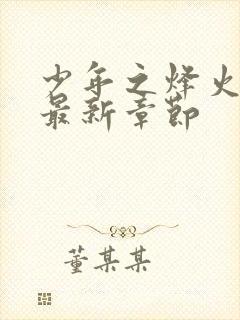 少年之烽火
最新章节
董某某